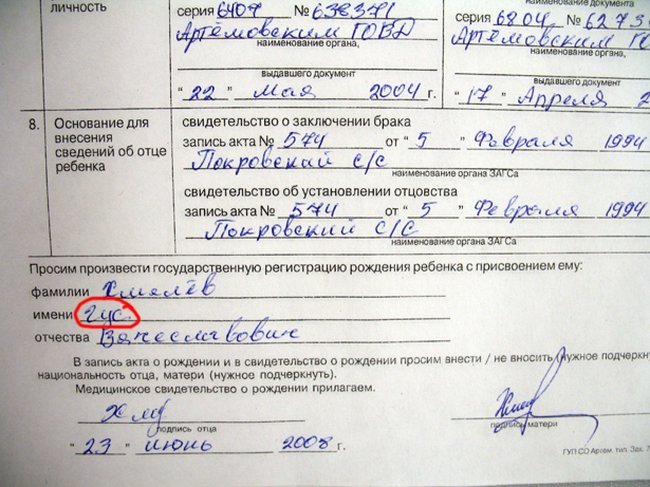 личность серия 6407 № 638371 наименование документа
Артёмовским ГОВД серия 6804 № 6273
наименование органа, Артёмовским ГО
наименование органа,
выдавшего документ выдавшего документ
"22" Мая 2004 г. "17" Апреля 2
8. Основание для внесения сведений об отце ребенка
свидетельство о заключении брака
запись акта № 574 от "5" Февраля 1994
Покровский с/с
наименование органа ЗАГСа
свидетельство об установлении отцовства
запись акта № 574 от "5" Февраля 1994
Покровский с/с
наименование органа ЗАГСа
Просим произвести государственную регистрацию рождения ребенка с присвоением ему:
фамилии Хмелёв
имени Гус
отчества Вячеславович
В запись акта о рождении и в свидетельство о рождении просим внести / не вносить (нужное подчеркн
национальность отца, матери (нужное подчеркнуть).
Медицинское свидетельство о рождении прилагаем.
подпись отца подпись матери
"23" июнь 2008 г.
ГУП СО Артем. тип. Зак. 7